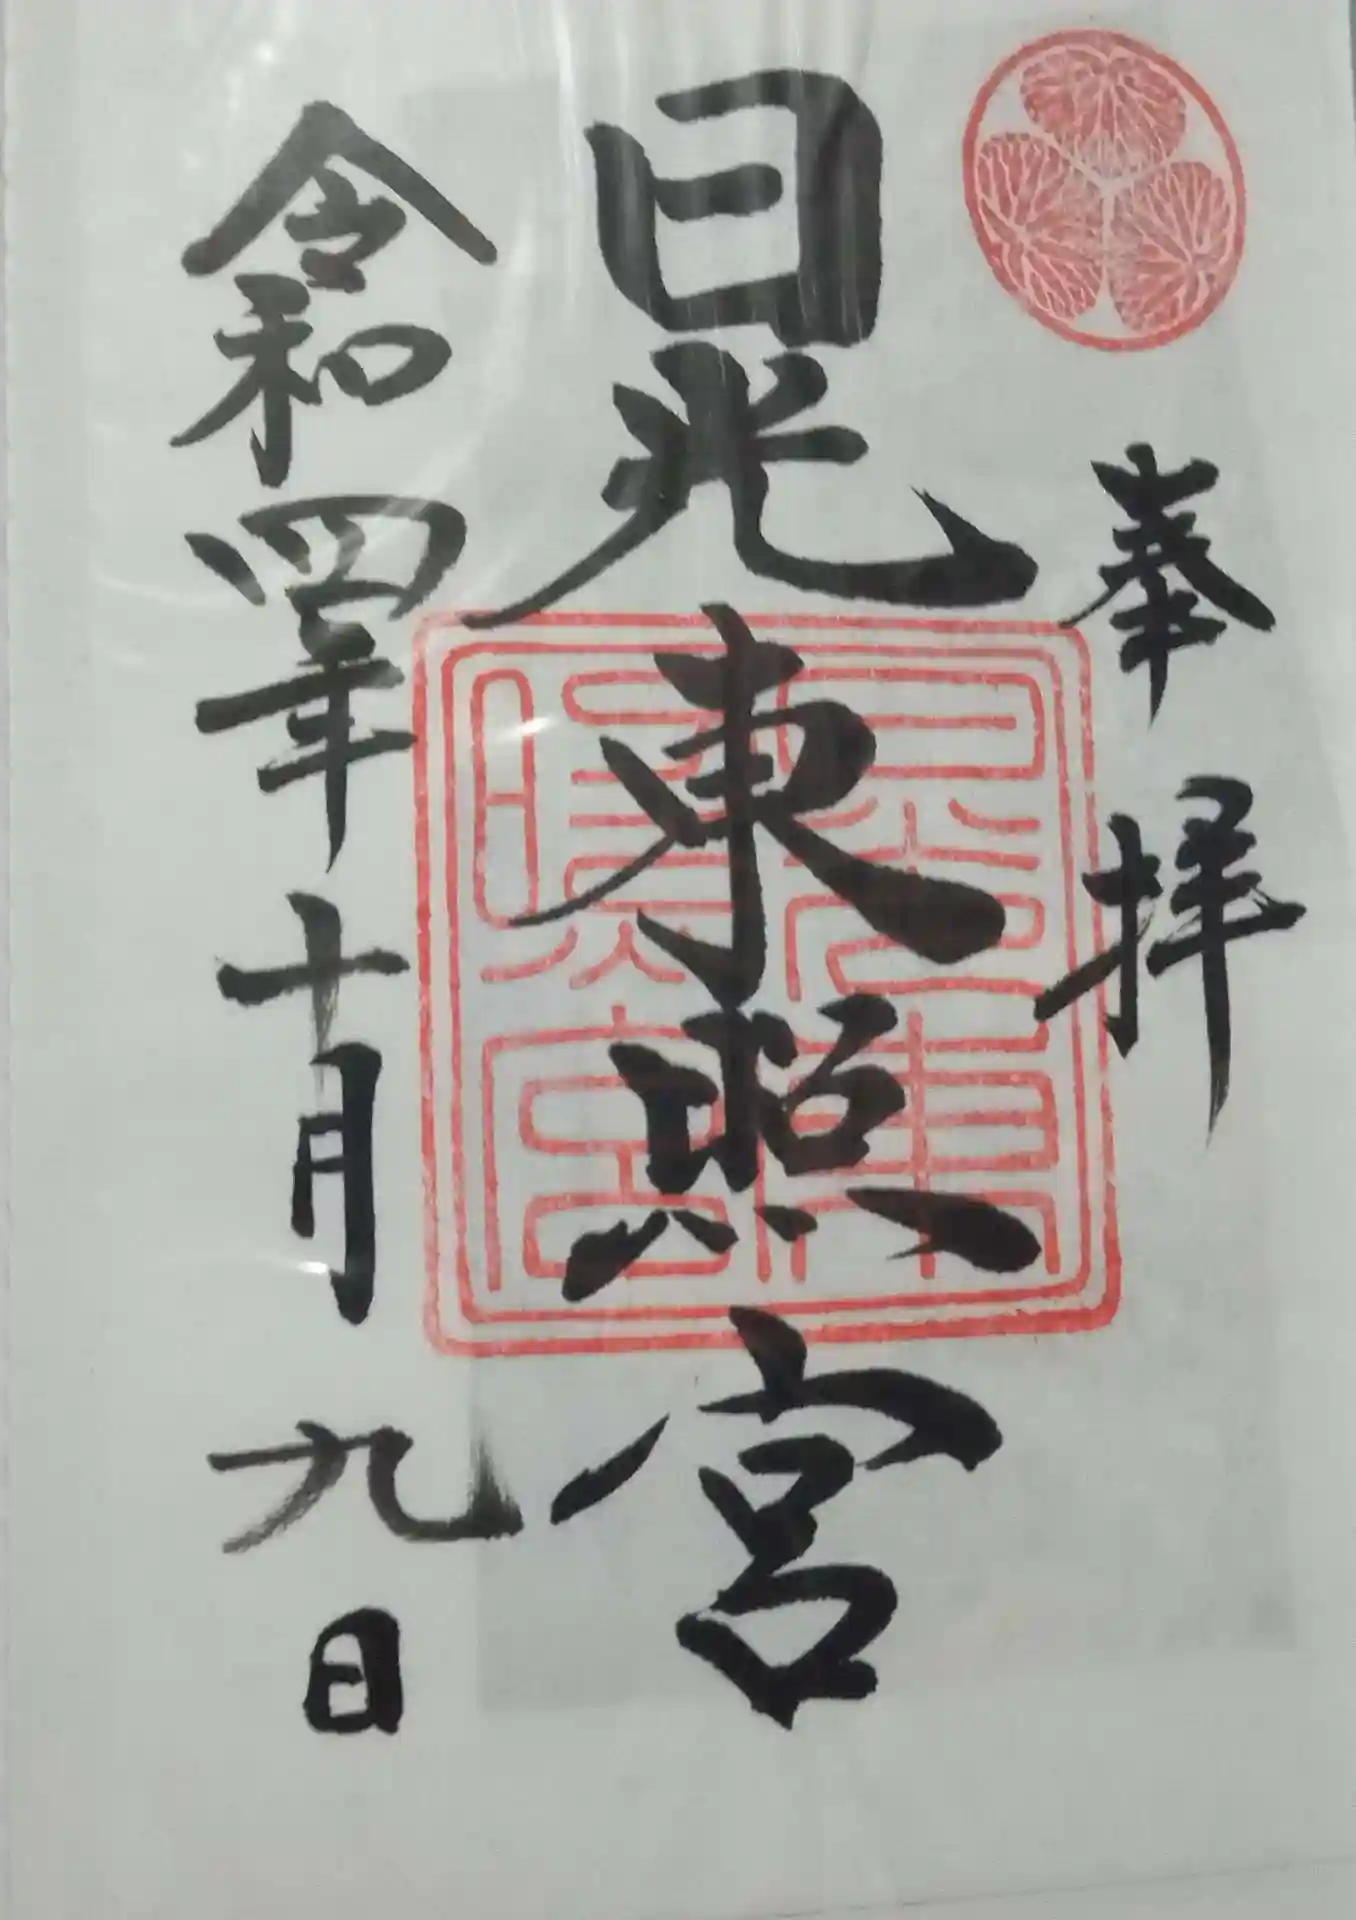 奉拝
日光東照宮
令和四年十月九日
日光東照宮